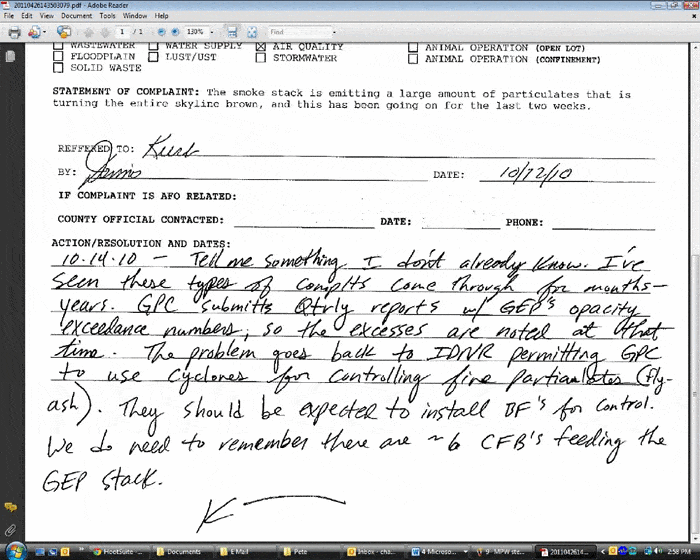 20110426143503079.pdf - Adobe Reader
File Edit View Document Tools Window Help
1 / 1 130% Find
WASTEWATER WATER SUPPLY AIR QUALITY ANIMAL OPERATION (OPEN LOT)
FLOODPLAIN LUST/UST STORMWATER ANIMAL OPERATION (CONFINEMENT)
SOLID WASTE
STATEMENT OF COMPLAINT: The smoke stack is emitting a large amount of particulates that is
turning the entire skyline brown, and this has been going on for the last two weeks.
REFFERED TO: Kurt
BY: Dennis DATE: 10/12/10
IF COMPLAINT IS AFO RELATED:
COUNTY OFFICIAL CONTACTED: DATE: PHONE:
ACTION/RESOLUTION AND DATES:
10.14.10 - Tell me something I don't already know. I've
seen these types of complts come through for months-
years. GPC submitts Qtrly reports w/ GEP's opacity
exceedance numbers, so the excesses are noted at that
time. The problem goes back to IDNR permitting GPC
to use cyclones for controlling fine particulates (fly-
ash). They should be expected to install BF's for control.
We do need to remember there are ~6 CFB's feeding the
GEP stack.
K
HootSuite - Documents E Mail Pete Inbox - cha... 4 Microso... 9 - MPW ste... 2011042614... 2:58 PM